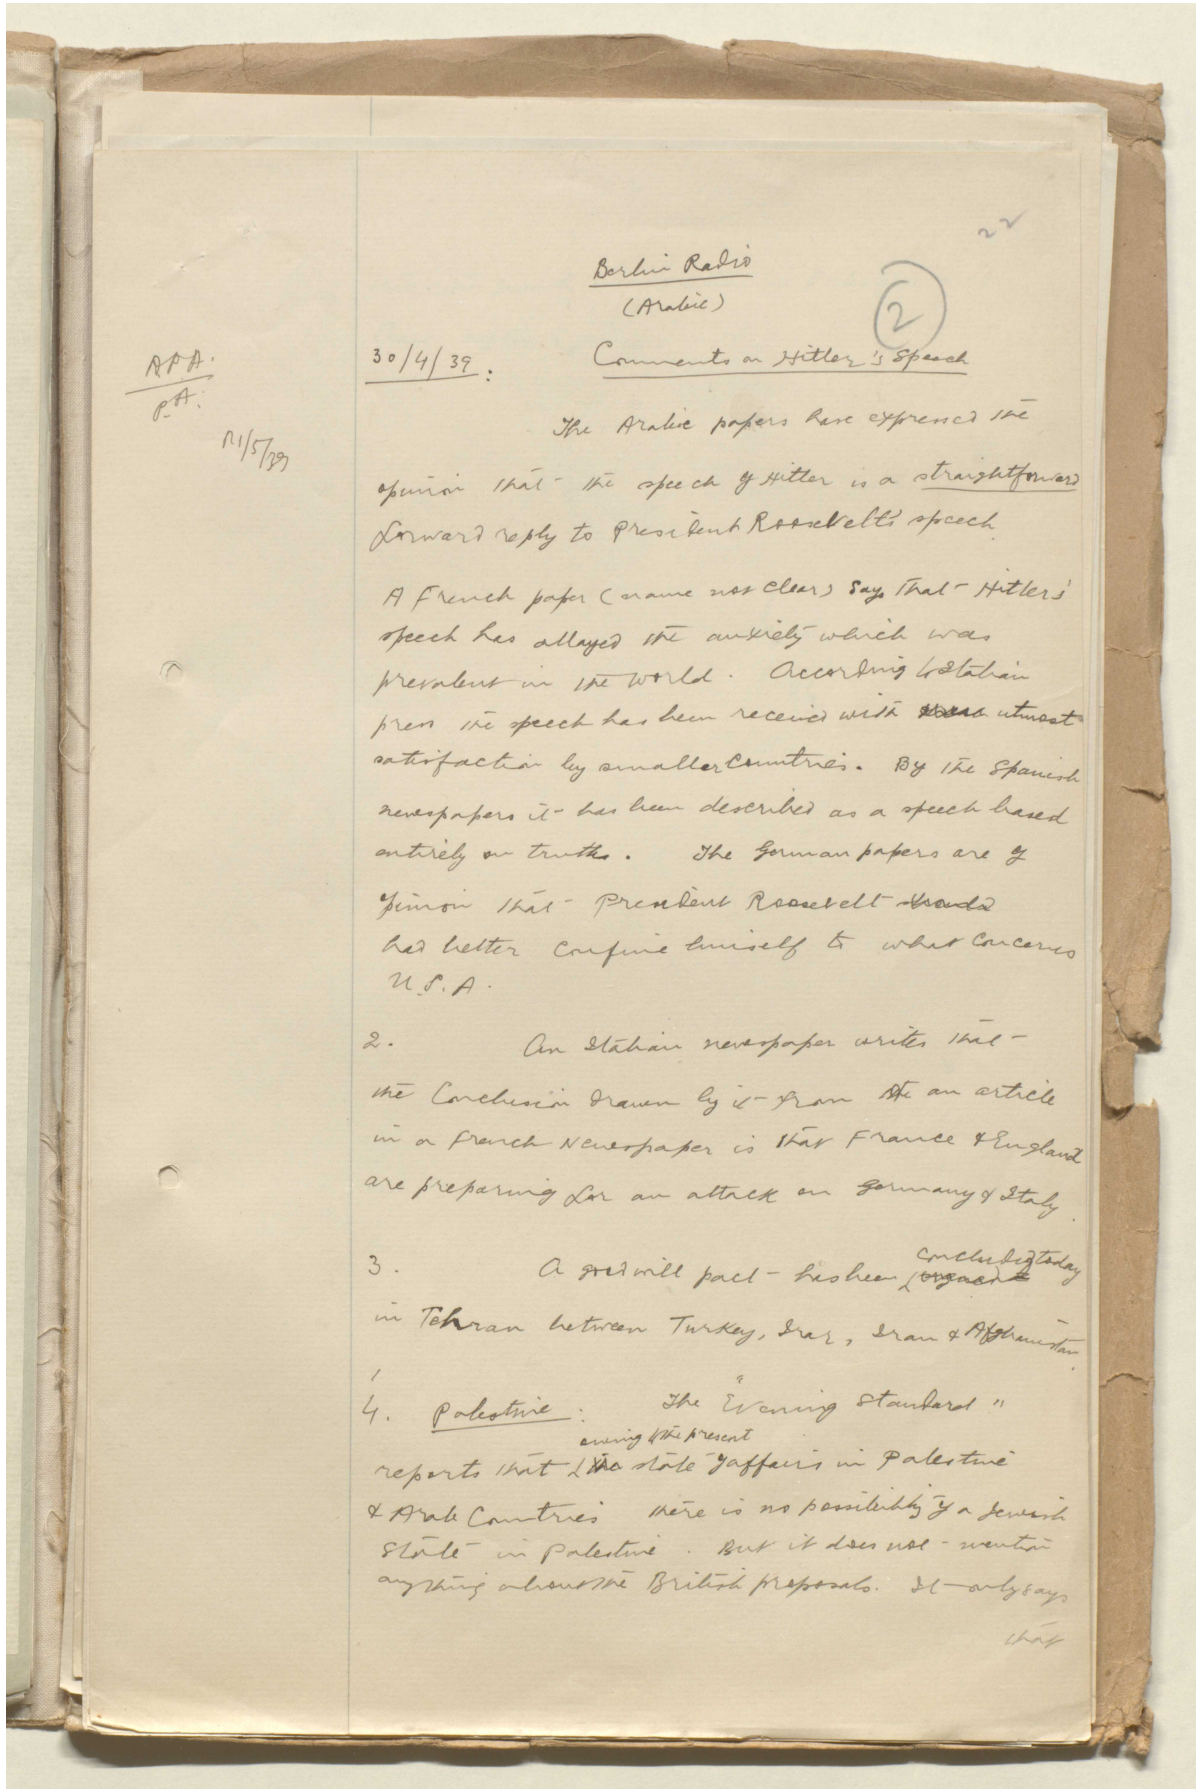 22
Berlin Radio
(Arabic)
2
30/4/39:
Comments on Hitler's Speech
A.P.A.
P.A.
1/5/39
The Arabic papers have expressed the
opinion that the speech of Hitler is a straightforward
forward reply to President Roosevelt's speech.
A French paper (name not clear) says that Hitler's
speech has allayed the anxiety which was
prevalent in the world. According to Italian
press the speech has been received with utmost
satisfaction by smaller countries. By the Spanish
newspapers it has been described as a speech based
entirely on truths. The German papers are of
opinion that President Roosevelt
had better confine himself to what concerns
U.S.A.
2. An Italian newspaper writes that
the conclusion drawn by it from the an article
in a French Newspaper is that France & England
are preparing for an attack on Germany & Italy.
3. A goodwill pact has been concluded today
in Tehran between Turkey, Iraq, Iran & Afghanistan.
4. Palestine: The "Evening Standard"
reports that owing to the present state of affairs in Palestine
& Arab Countries there is no possibility of a Jewish
State in Palestine. But it does not mention
anything about the British proposals. It only says
that